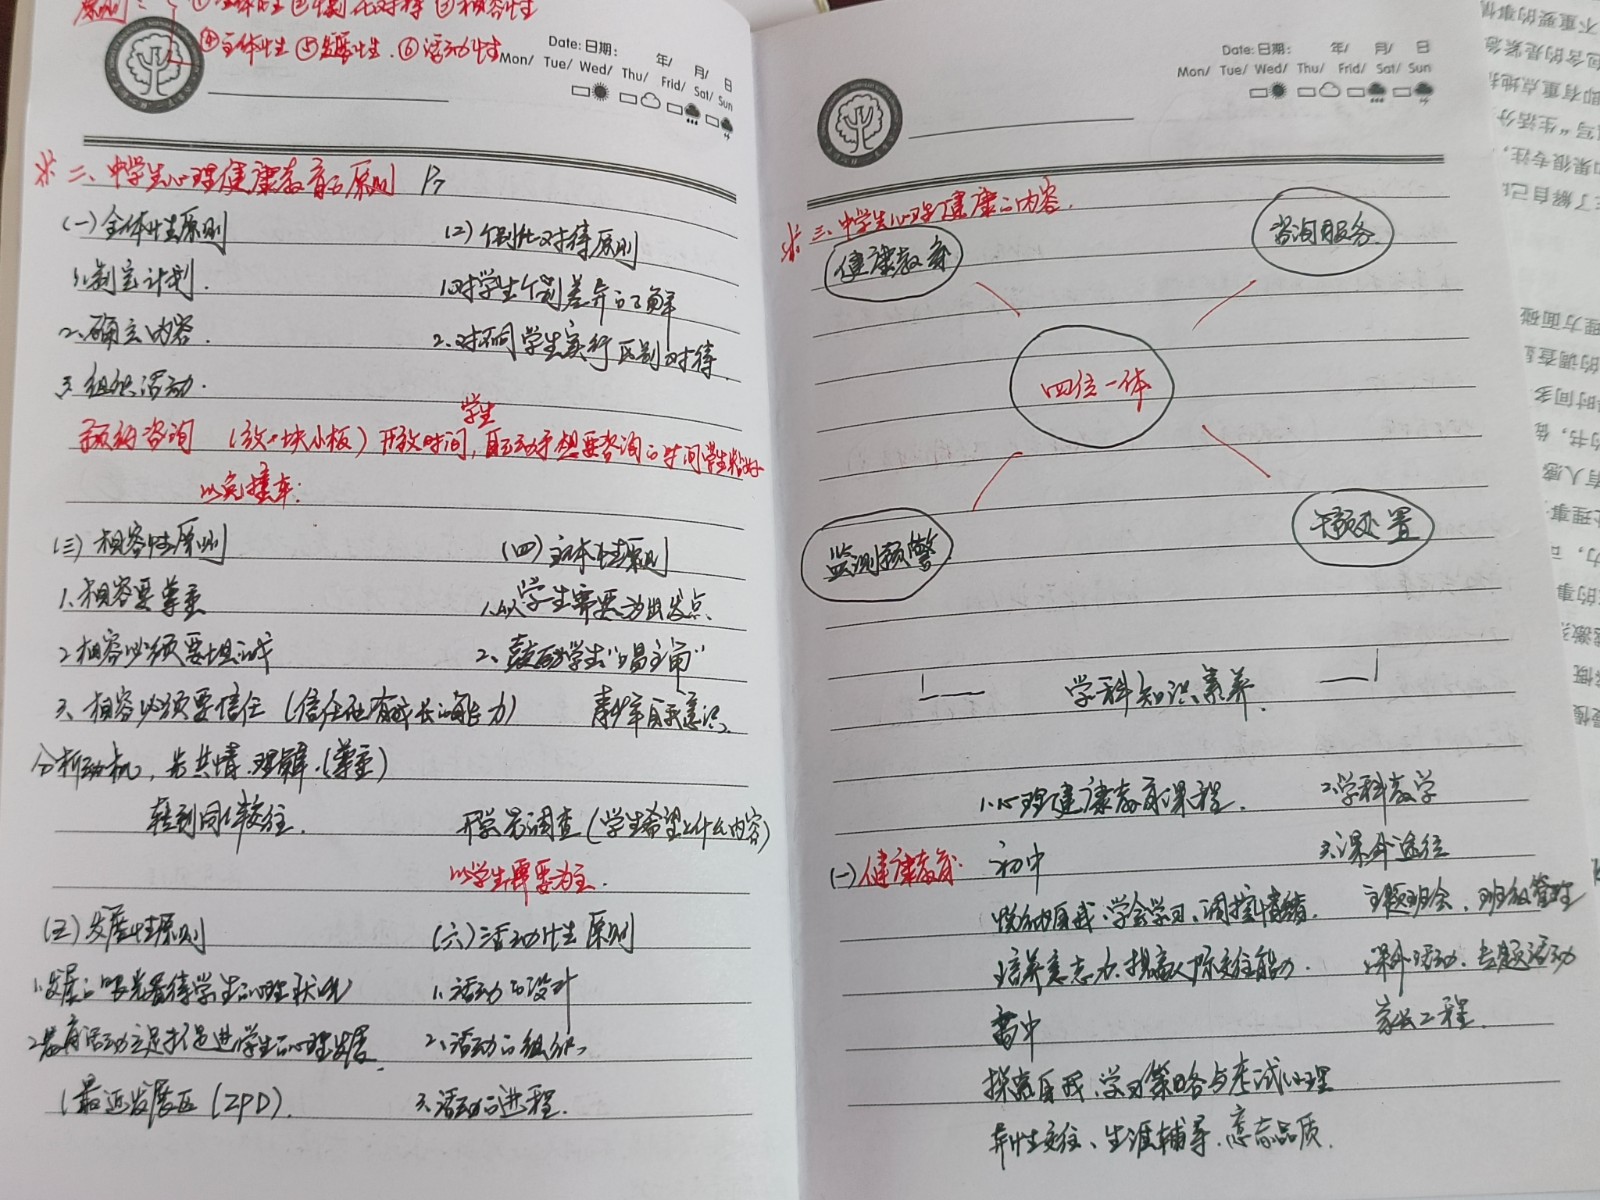 原则： ①全体性 ②个别化对待 ③相容性
④主体性 ⑤发展性. ⑥活动性
Date:日期: 年/ 月/ 日
Mon/ Tue/ Wed/ Thu/ Frid/ Sat/ Sun
二、中学生心理健康教育的原则
(一)全体性原则
(二)个别化对待原则
1.制定计划.
1.对学生个别差异的了解
2.确立内容.
2.对不同学生实行区别对待.
3.组织活动.
学生
预约咨询 (放一块小板) 开放时间,
以免撞车.
(三)相容性原则
(四)主体性原则
1.相容要尊重
1.以学生需要为出发点.
2.相容必须要坦诚
2.鼓励学生"唱主角"
3.相容必须要信任 (信任他有成长的能力)
青少年自我意识.
分析动机, 先共情.理解.(尊重)
转到同伴交往.
开学另调查(学生希望上什么内容)
以学生需要为主.
(五)发展性原则
(六)活动性原则
1.发展的眼光看待学生心理状况
1.活动的设计
2.教育活动立足于促进学生的心理发展
2.活动的组织
(最近发展区(ZPD).
3.活动的进程.
Date:日期: 年/ 月/ 日
Mon/ Tue/ Wed/ Thu/ Frid/ Sat/ Sun
三.中学生心理健康的内容.
健康教育
咨询服务
四位一体
监测预警
干预处置
学科知识素养.
1.心理健康教育课程.
2.学科教学
(一)健康教育.
初中
3.课外途径
悦纳自我、学会学习、调控情绪.
主题班会、班级管理
培养意志力.提高人际交往能力.
课外活动.专题活动
高中
家长工程.
探索自我、学习策略与考试心理
异性交往、生涯辅导.意志品质.